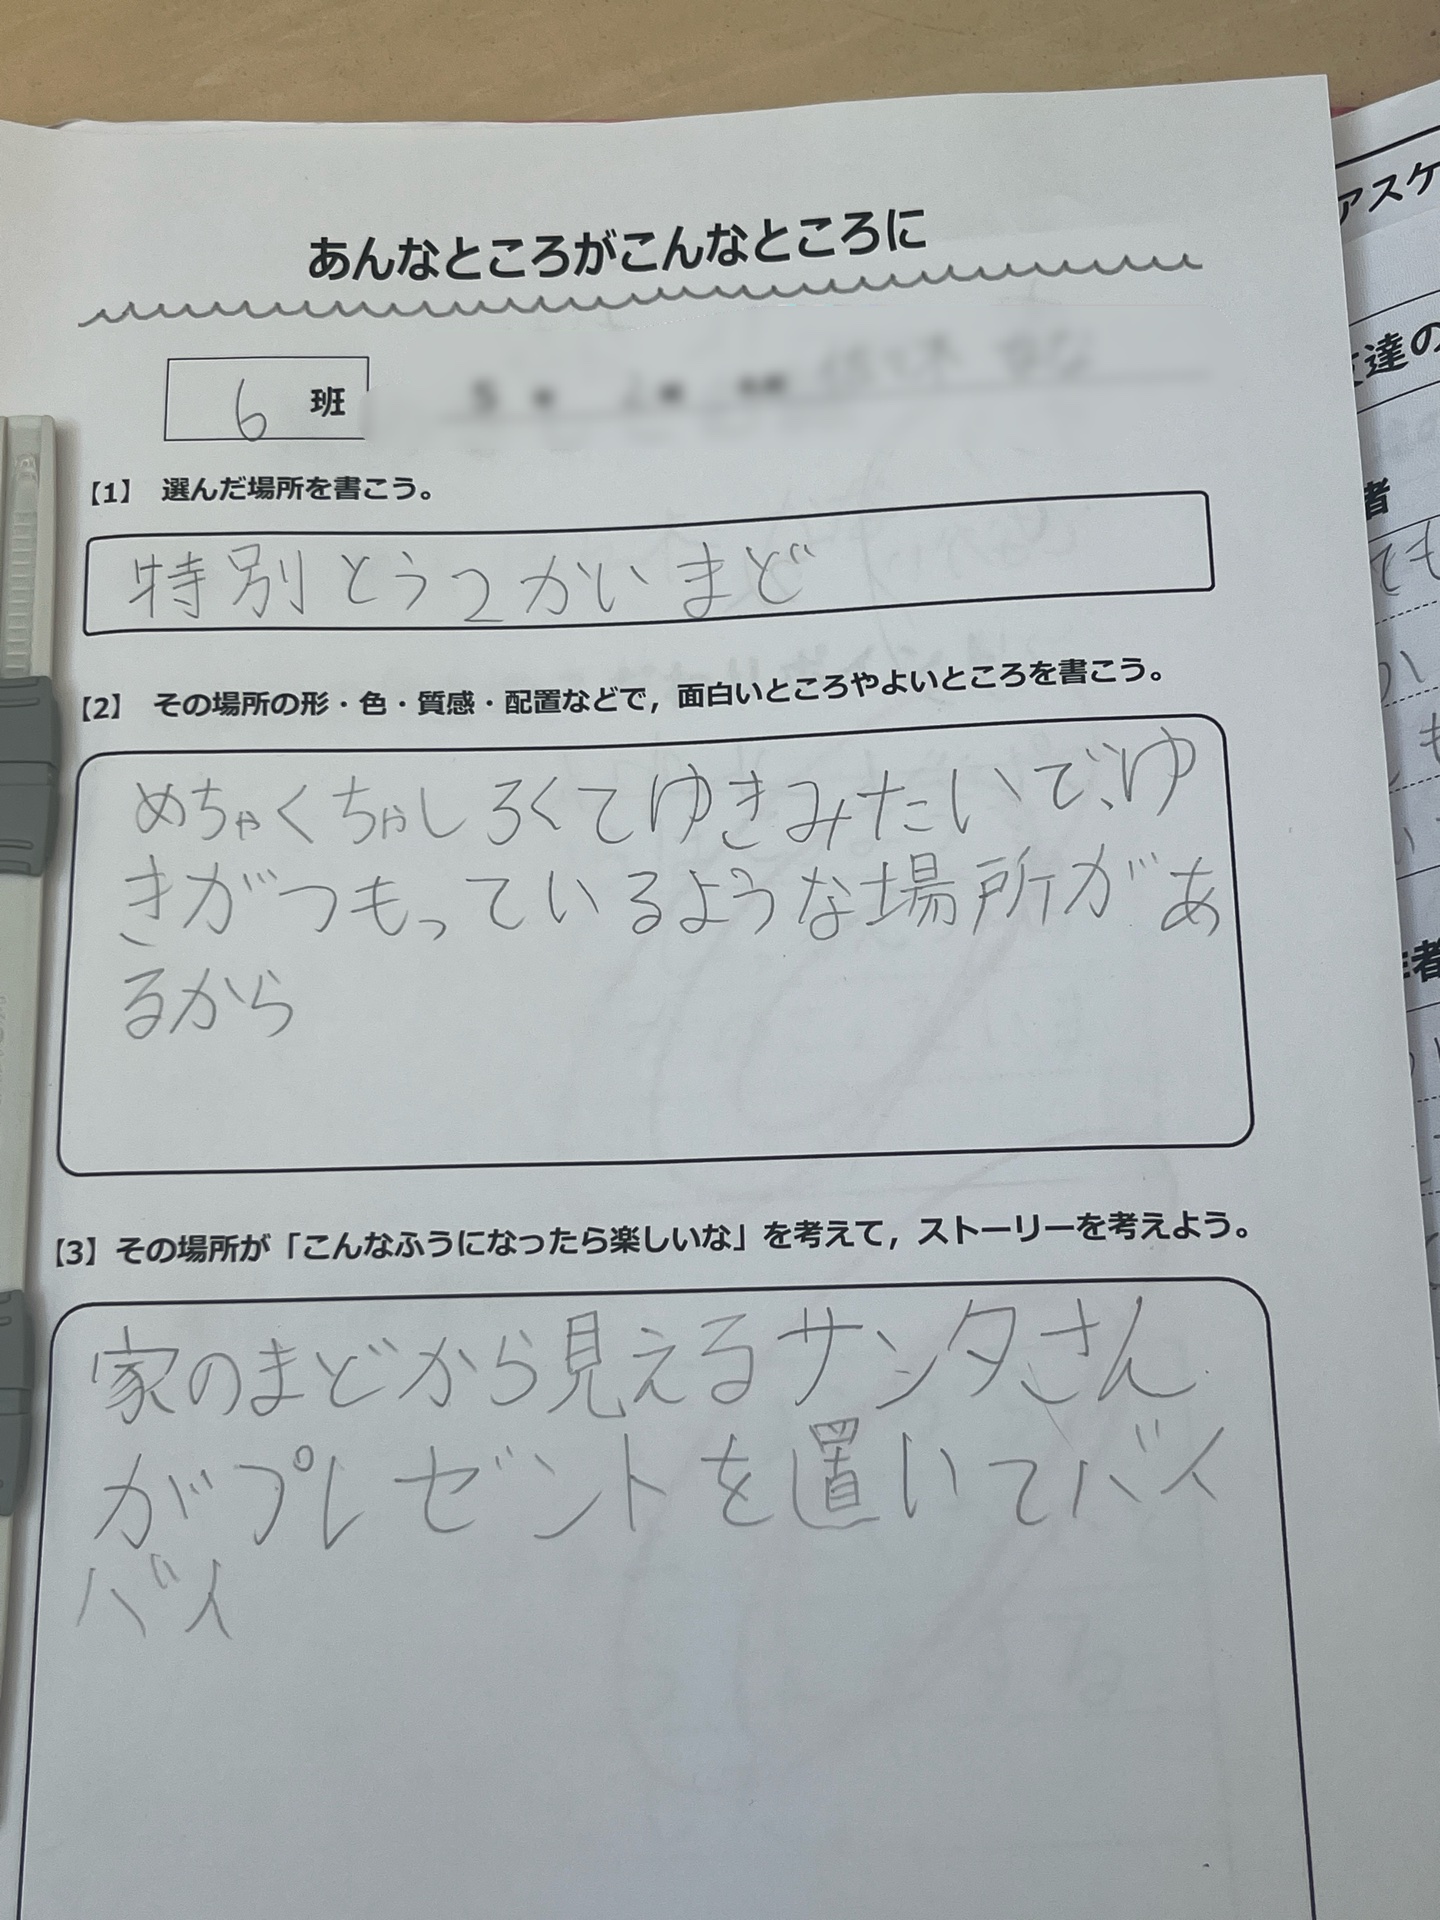 あんなところがこんなところに
6 班
【1】 選んだ場所を書こう。
特別とう2かいまど
【2】 その場所の形・色・質感・配置などで，面白いところやよいところを書こう。
めちゃくちゃしろくてゆきみたいで、ゆ
きがつもっているような場所があ
るから
【3】その場所が「こんなふうになったら楽しいな」を考えて，ストーリーを考えよう。
家のまどから見えるサンタさん
がプレゼントを置いてバイ
バイ
アスケ
達の
者
ても